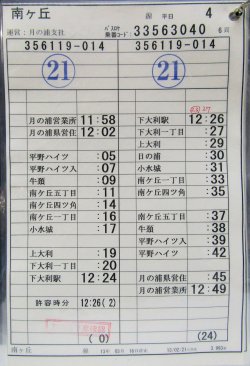 南ヶ丘
平日
4
運営：月の浦支社
乗番コード：
33563040
356119-014
356119-014
21
21
月の浦営業所 11:58
月の浦県営住 12:02
平野ハイツ :05
平野ハイツ入 :07
牛頸 :09
南ケ丘五丁目 :11
南ケ丘四ツ角 :14
南ケ丘一丁目 :16
小水城 :17
上大利 :19
下大利一丁目 :20
下大利駅 12:24
許容時分 12:26(2)
(0)
27
下大利駅 12:26
下大利一丁目 :27
上大利 :29
日の浦 :30
小水城 :31
南ケ丘一丁目 :33
南ケ丘四ツ角 :35
南ケ丘五丁目 :37
月の浦 :38
平野ハイツ入 :39
平野ハイツ :42
月の浦県営住 :45
月の浦営業所 12:49
(24)
南ヶ丘